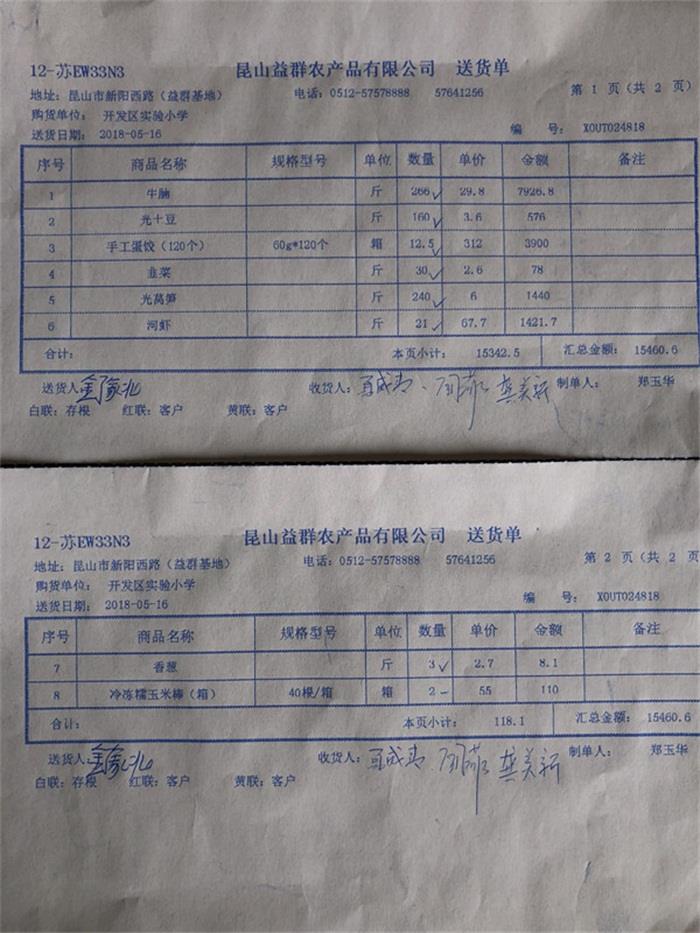 12-苏EW33N3 昆山益群农产品有限公司 送货单
地址: 昆山市新阳西路(益群基地) 电话: 0512-57578888 57641256 第 1 页(共 2 页)
购货单位: 开发区实验小学
送货日期: 2018-05-16 编 号: XOUT024818
序号 商品名称 规格型号 单位 数量 单价 金额 备注
1 牛腩 斤 266 29.8 7926.8
2 光土豆 斤 160 3.6 576
3 手工蛋饺(120个) 60g*120个 箱 12.5 312 3900
4 韭菜 斤 30 2.6 78
5 光莴笋 斤 240 6 1440
6 河虾 斤 21 67.7 1421.7
合计: 本页小计: 15342.5 汇总金额: 15460.6
送货人: 收货人: 龚美新 制单人: 郑玉华
白联: 存根 红联: 客户 黄联: 客户
12-苏EW33N3 昆山益群农产品有限公司 送货单
地址: 昆山市新阳西路(益群基地) 电话: 0512-57578888 57641256 第 2 页(共 2 页)
购货单位: 开发区实验小学
送货日期: 2018-05-16 编 号: XOUT024818
序号 商品名称 规格型号 单位 数量 单价 金额 备注
7 香葱 斤 3 2.7 8.1
8 冷冻糯玉米棒(箱) 40根/箱 箱 2 55 110
合计: 本页小计: 118.1 汇总金额: 15460.6
送货人: 收货人: 龚美新 制单人: 郑玉华
白联: 存根 红联: 客户 黄联: 客户